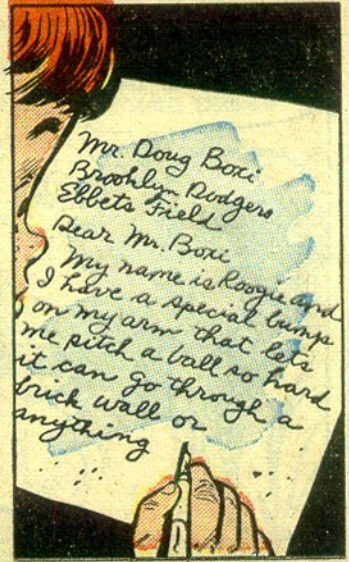 Mr. Doug Boxi
Brooklyn Dodgers
Ebbets Field
Dear Mr. Boxi
My name is Roogie and
I have a special bump
on my arm that lets
me pitch a ball so hard
it can go through a
brick wall or
anything